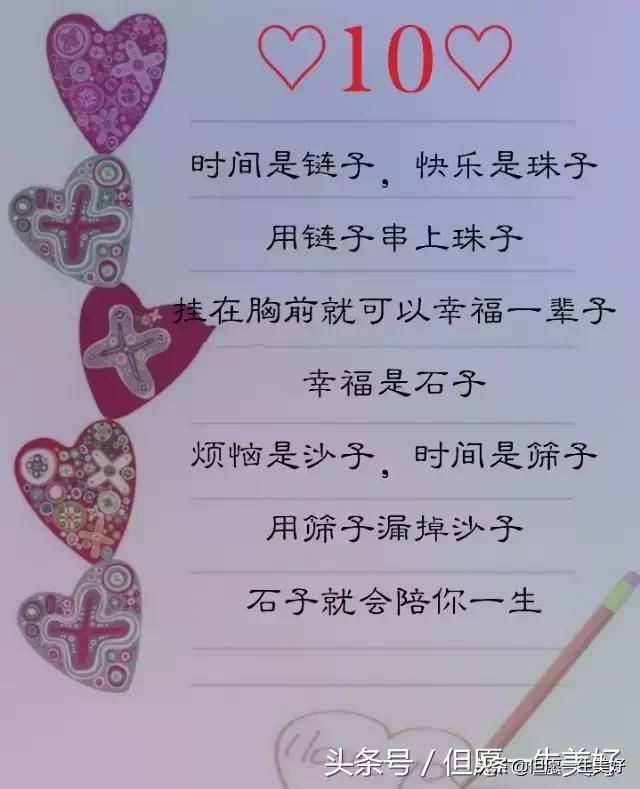 ♡10♡
时间是链子，快乐是珠子
用链子串上珠子
挂在胸前就可以幸福一辈子
幸福是石子
烦恼是沙子，时间是筛子
用筛子漏掉沙子
石子就会陪你一生
头条号 / 但愿一生美好
头条@但愿一生美好